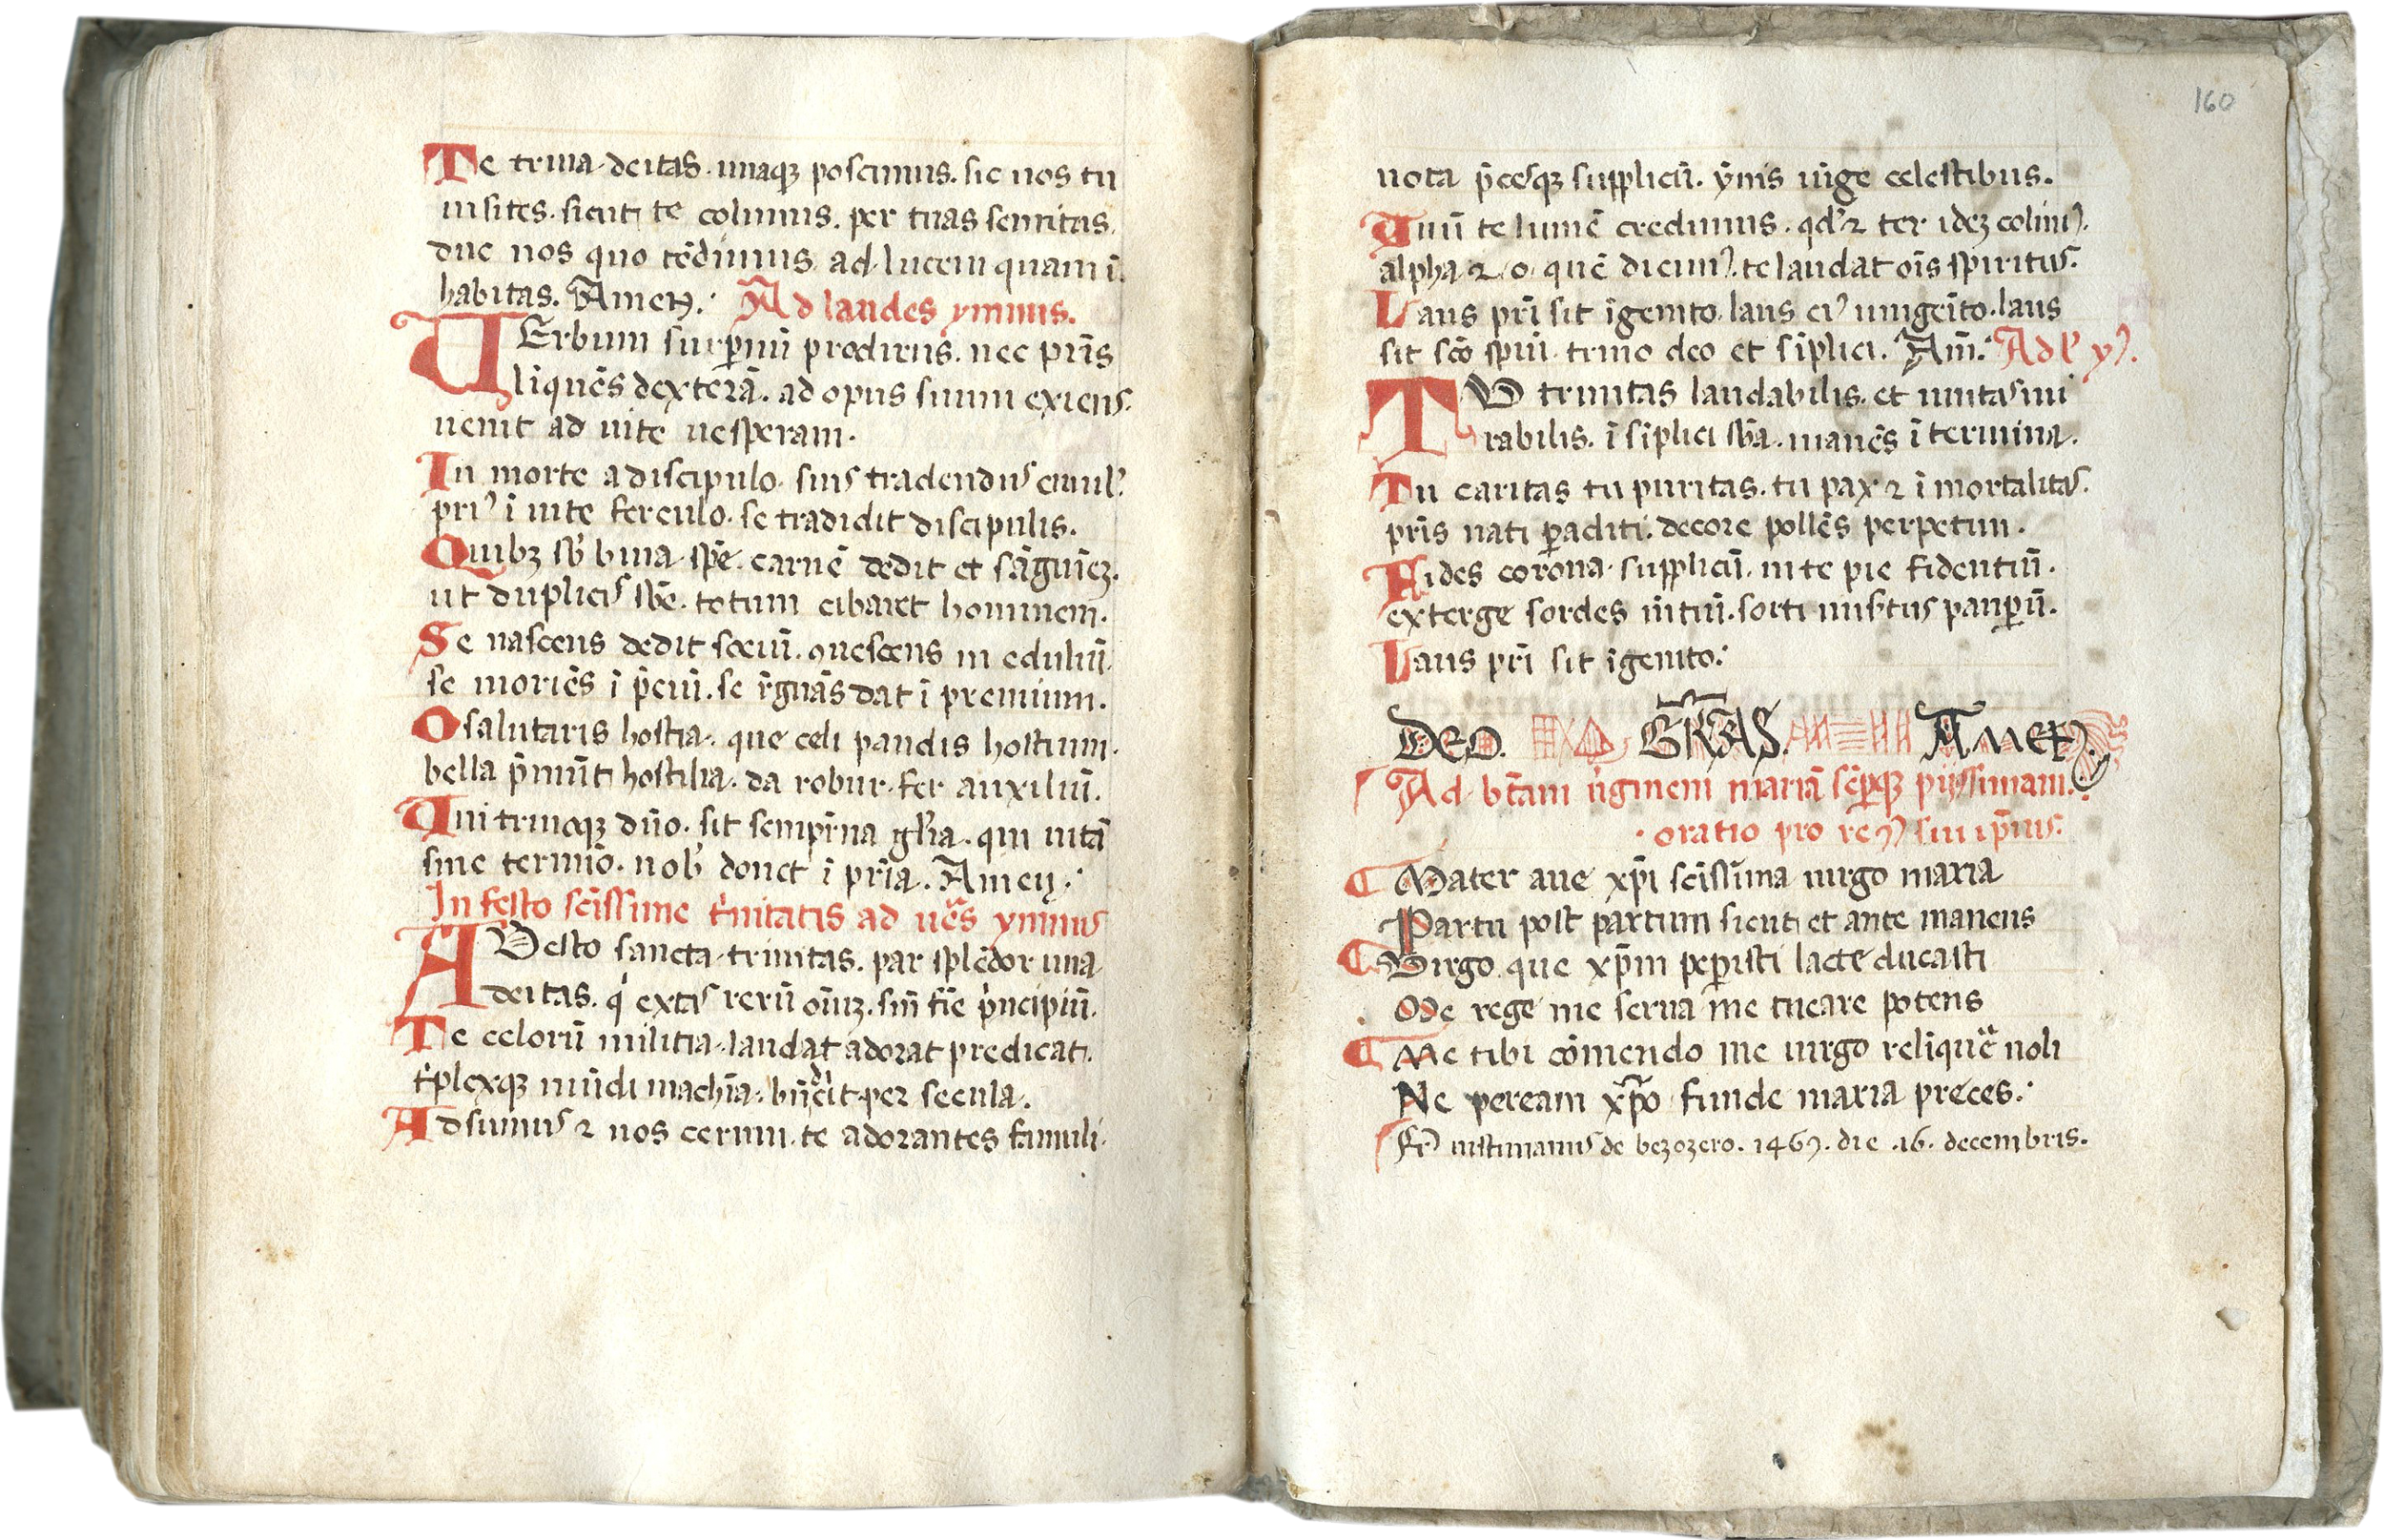 Te trina deitas. unaqꝫ poscimus. sic nos tu
uisites. sicuti te colimus. per tuas semitas.
duc nos quo tēdimus. ad lucem quam ī.
habitas. Amen. Ad laudes ymnus.
UErbum suꝑnū prodiens. nec pr̄is
līquēs dexterā. ad opus suum exiens.
uenit ad uite uesperam.
In morte a discipulo. suis tradendus emul᾽.
pri᾽ ī uite ferculo. se tradidit discipulis.
Quibꝫ sb̄ bina spē. carnē dedit et sāguīeꝫ.
ut duplicis sb̄e. totum cibaret hominem.
Se nascens dedit sociū. ꝯuescens in eduliū.
se moriēs ī p̄ciū. se r̄gnās dat ī premium.
O salutaris hostia. que celi pandis hostium.
bella p̄mūt hostilia. da robur. fer auxiliū.
Uni trinoqꝫ dn̄o. sit sempit̄na gl̄ia. qui uitā
sine termīo. nob᾽ donet ī pr̄ia. Amen.
In festo sc̄issime t̄nitatis ad ues̄ ymnus
ADesto sancta trinitas. par splēdor una
deitas. q extas rerū oīuꝫ. sin̄ fīe p̄ncipiū.
Te celorū militia. laudat adorat predicat.
t̄plexqꝫ mūdi machīa. bn̄dicit per secula.
Adsumus ⁊ nos cernui. te adorantes famuli.
160
uota p̄cesqꝫ suppliciū. ȳnis iūge celestibus.
Unū te lumē credimus. qd᾽ ⁊ ter ideꝫ colim᾽.
alpha ⁊ o quē dicim᾽. te laudat oīs spiritus.
Laus pr̄i sit īgenito. laus ei᾽ unigeīto. laus
sit sc̄o spiūi. trino deo et sīplici. Am̄. Ad l᾽ y᾽.
TU trinitas laudabilis. et unitas mi
rabilis. ī sīplici sb̄a. manēs ī termina.
Tu caritas tu puritas. tu pax ⁊ ī mortalitas.
pr̄is nati ꝑacliti. decore pollēs perpetim.
Fides corona suppliciū. in te pie fidentiū.
exterge sordes mētiū. sorti mistus pauꝑū.
Laus pr̄i sit īgenito.
DEO. GRAS. AMEN.
Ad btam ūginem mariā sēꝑqꝫ pijssimam.
oratio pro re᾽ sui ip̄ius.
Mater aue xp̄i sc̄issima uirgo maria
Partu post partum sicuti et ante manens
Virgo que xp̄m peꝑisti lacte ducasti
Me rege me serua me tueare potens
Me tibi cōmendo me uirgo relīquē noli
Ne peream xp̄o funde maria preces.
Fr̄ iustinianus de bezozero. 1467. die .16. decembris.